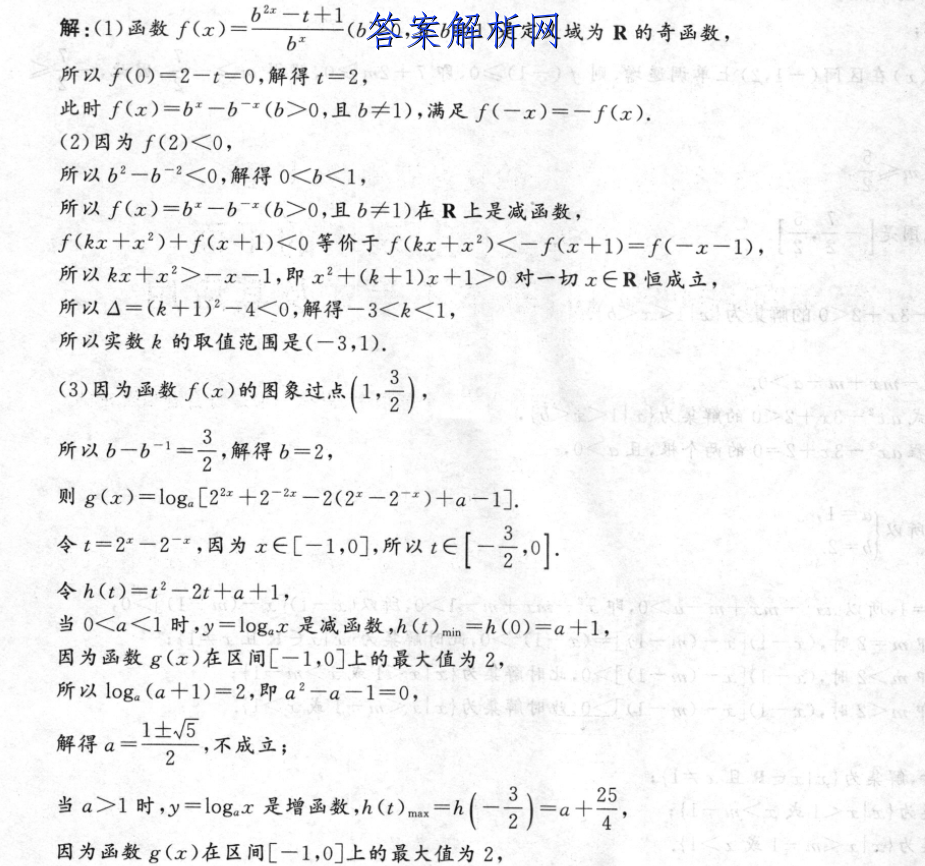 解:(1)函数 f(x)=\frac{b^{2x}-t+1}{b^x}(b 定义域为 R 的奇函数,
答案解析网
所以 f(0)=2-t=0,解得 t=2,
此时 f(x)=b^x-b^{-x}(b>0,且 b≠1),满足 f(-x)=-f(x).
(2)因为 f(2)<0,
所以 b²-b^{-2}<0,解得 0<b<1,
所以 f(x)=b^x-b^{-x}(b>0,且 b≠1)在 R 上是减函数,
f(kx+x²)+f(x+1)<0 等价于 f(kx+x²)<-f(x+1)=f(-x-1),
所以 kx+x²>-x-1,即 x²+(k+1)x+1>0 对一切 x∈R 恒成立,
所以 Δ=(k+1)²-4<0,解得-3<k<1,
所以实数 k 的取值范围是(-3,1).
(3)因为函数 f(x)的图象过点(1,\frac{3}{2}),
所以 b-b^{-1}=\frac{3}{2},解得 b=2,
则 g(x)=log_a[2^{2x}+2^{-2x}-2(2^x-2^{-x})+a-1].
令 t=2^x-2^{-x},因为 x∈[-1,0],所以 t∈[-\frac{3}{2},0].
令 h(t)=t²-2t+a+1,
当 0<a<1 时,y=log_a x 是减函数,h(t)_{min}=h(0)=a+1,
因为函数 g(x)在区间[-1,0]上的最大值为 2,
所以 log_a(a+1)=2,即 a²-a-1=0,
解得 a=\frac{1±√5}{2},不成立;
当 a>1 时,y=log_a x 是增函数,h(t)_{max}=h(-\frac{3}{2})=a+\frac{25}{4},
因为函数 g(x)在区间[-1,0]上的最大值为 2,